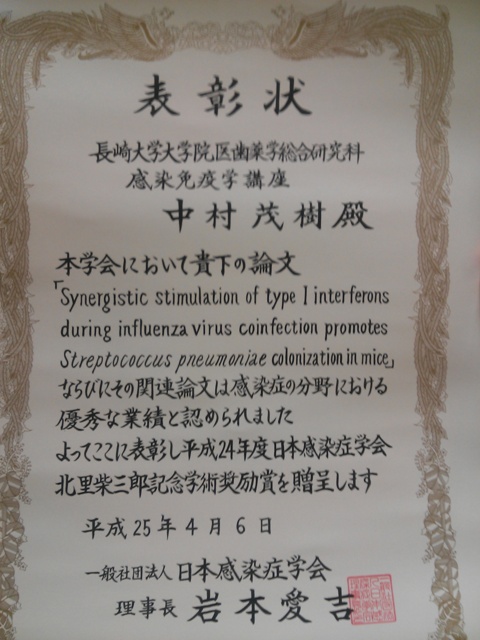 表彰状
長崎大学大学院医歯薬学総合研究科
感染免疫学講座
中村茂樹殿
本学会において貴下の論文
「Synergistic stimulation of type I interferons
during influenza virus coinfection promotes
Streptococcus pneumoniae colonization in mice」
ならびにその関連論文は感染症の分野における
優秀な業績と認められました
よってここに表彰し平成24年度日本感染症学会
北里柴三郎記念学術奨励賞を贈呈します
平成25年4月6日
一般社団法人日本感染症学会
理事長 岩本愛吉